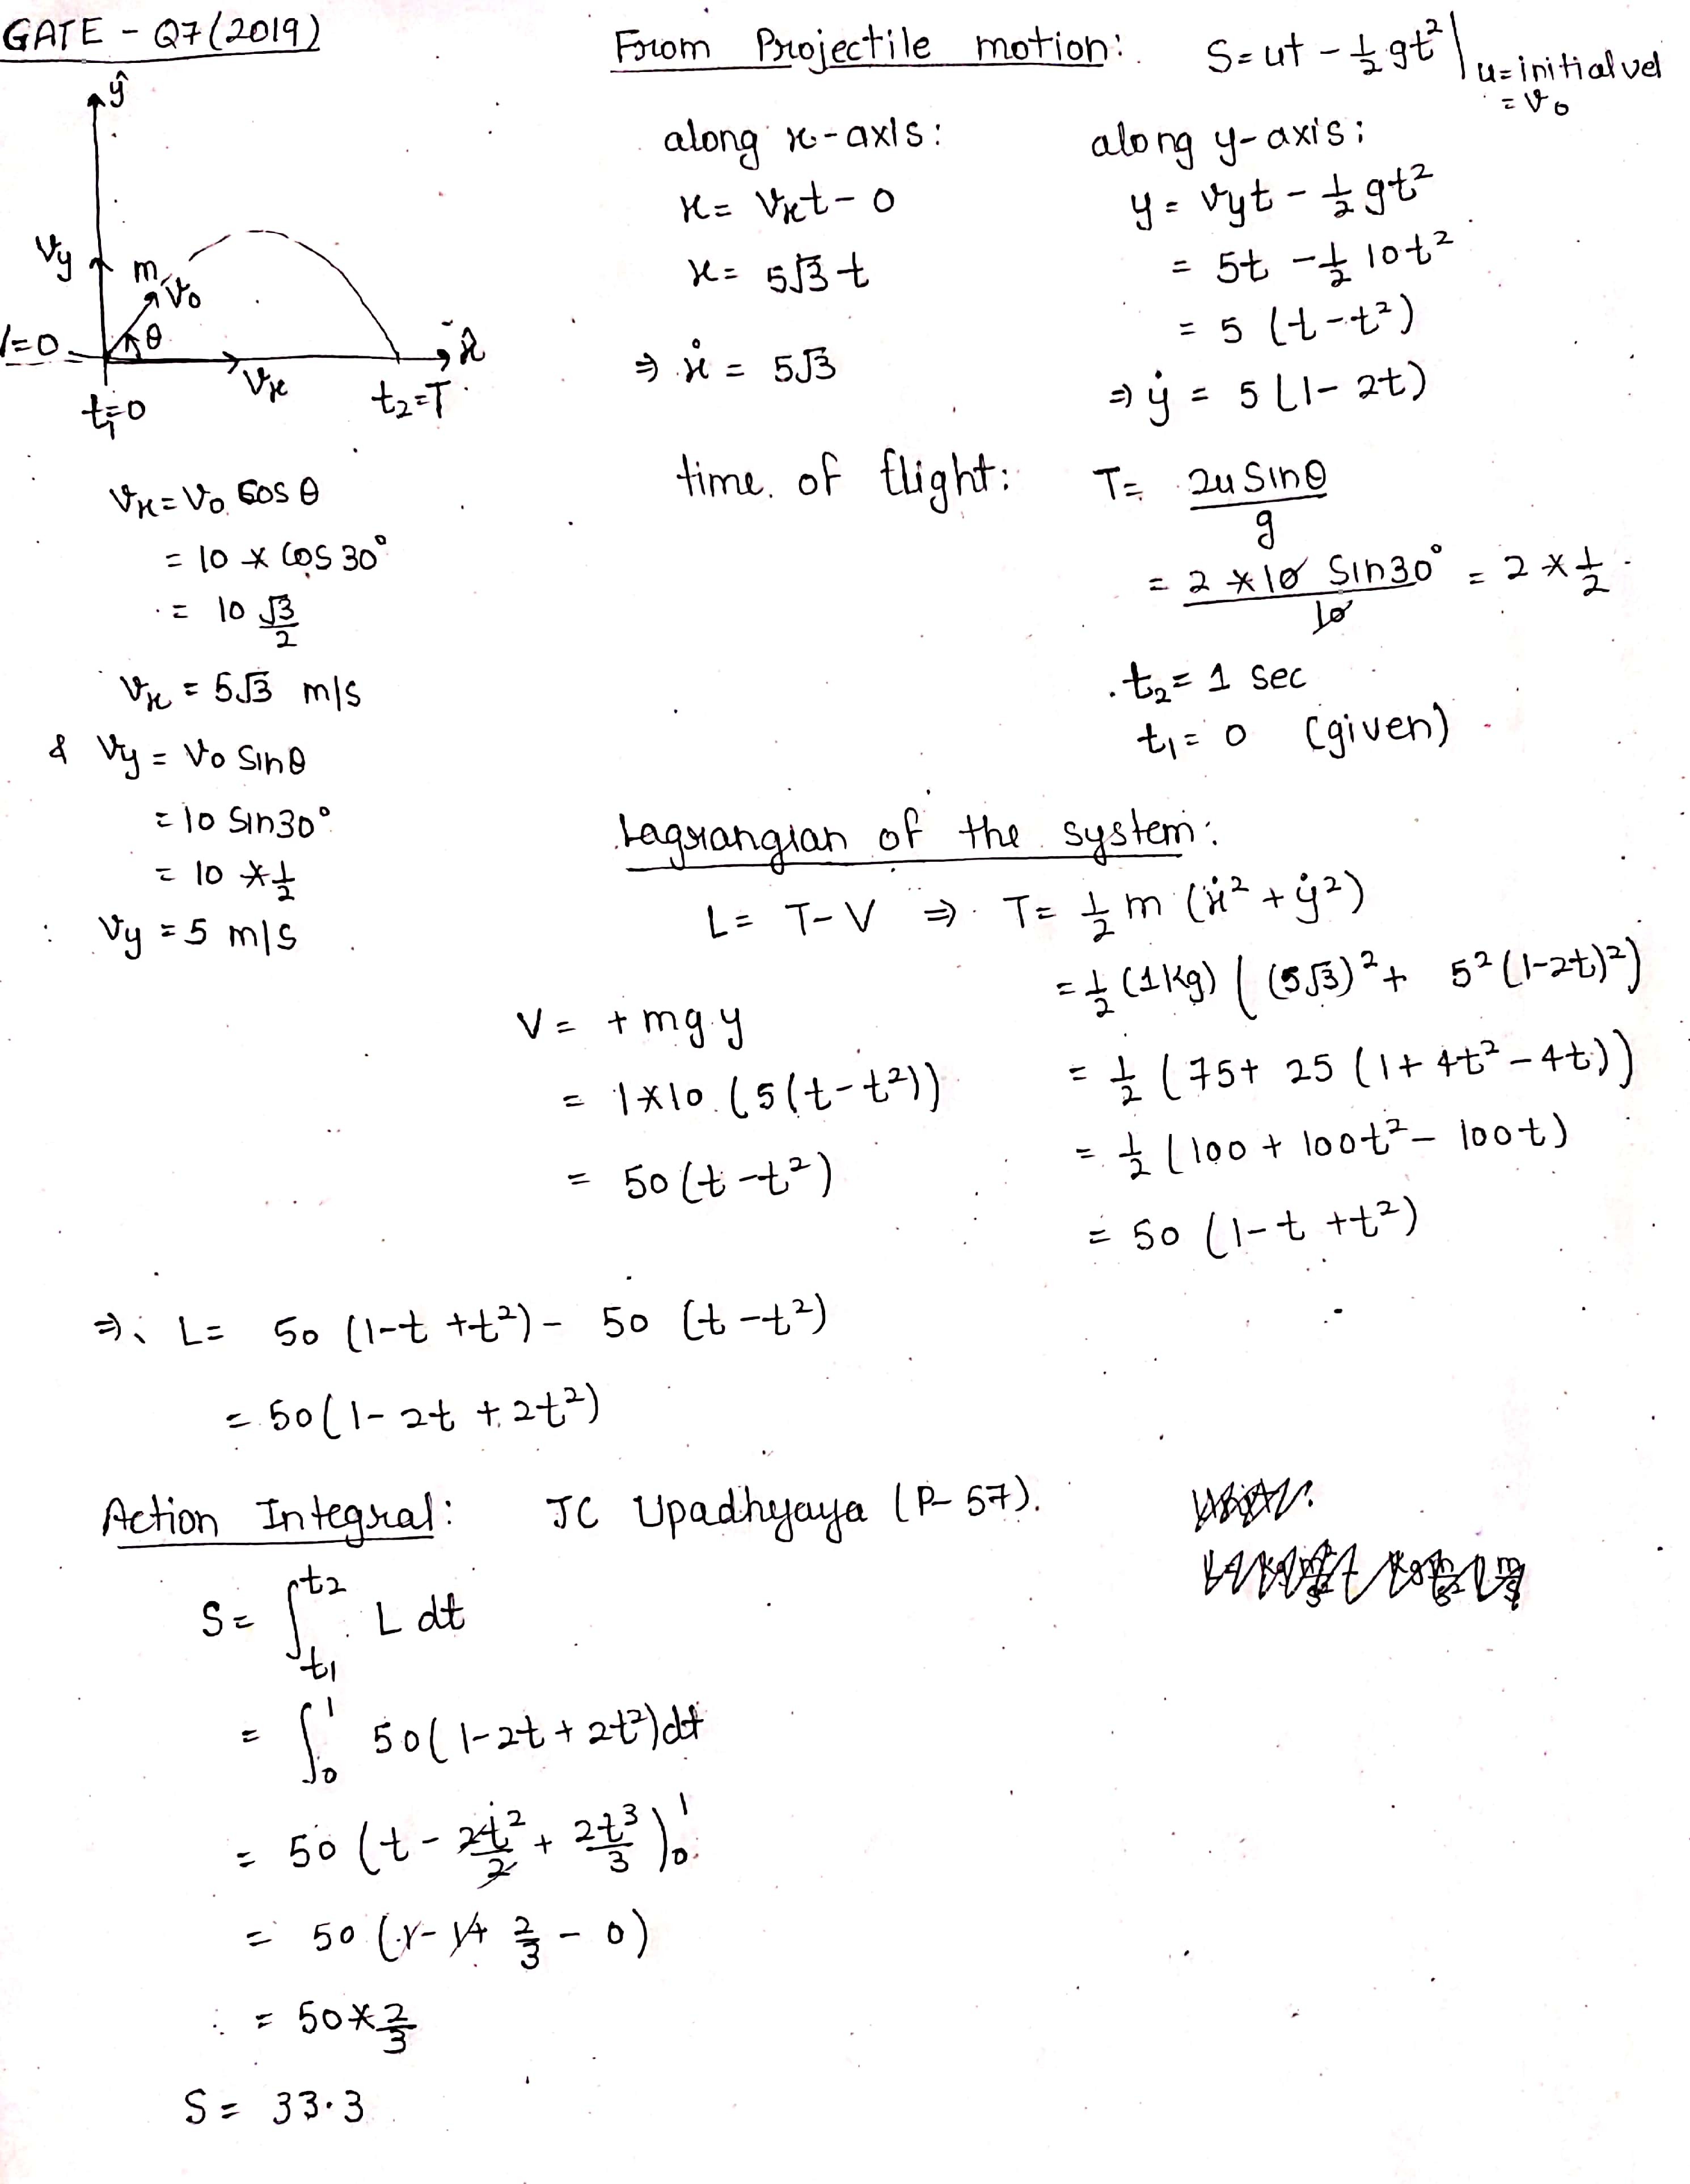 GATE - Q7(2019)
ŷ
Vy
m
V₀
θ
V=0
x̂
Vx
t₁=0
t₂=T
Vx = V₀ cos θ
= 10 * cos 30°
= 10 √3/2
Vx = 5√3 m/s
& Vy = V₀ Sinθ
= 10 Sin30°
= 10 * 1/2
Vy = 5 m/s
From Projectile motion: S = ut - 1/2 gt² | u = initial vel
= V₀
along x-axis:
x = Vxt - 0
x = 5√3 t
⇒ ẋ = 5√3
along y-axis:
y = Vyt - 1/2 gt²
= 5t - 1/2 10t²
= 5 (t - t²)
⇒ ẏ = 5 (1 - 2t)
time of flight: T = 2u Sinθ/g
= 2 * 10 Sin30°/10 = 2 * 1/2
t₂ = 1 sec
t₁ = 0 (given)
Lagrangian of the system:
L = T - V ⇒ T = 1/2 m (ẋ² + ẏ²)
= 1/2 (1kg) ( (5√3)² + 5² (1-2t)²)
= 1/2 (75 + 25 (1 + 4t² - 4t))
= 1/2 (100 + 100t² - 100t)
= 50 (1 - t + t²)
V = + mg.y
= 1*10.(5(t - t²))
= 50 (t - t²)
⇒ L = 50 (1 - t + t²) - 50 (t - t²)
= 50(1 - 2t + 2t²)
Action Integral: JC Upadhyaya (P- 57).
S = ∫t₁^t₂ L dt
= ∫₀¹ 50(1 - 2t + 2t²)dt
= 50 (t - 2t²/2 + 2t³/3)₀¹
= 50 (1 - 1 + 2/3 - 0)
∴ = 50 * 2/3
S = 33.3